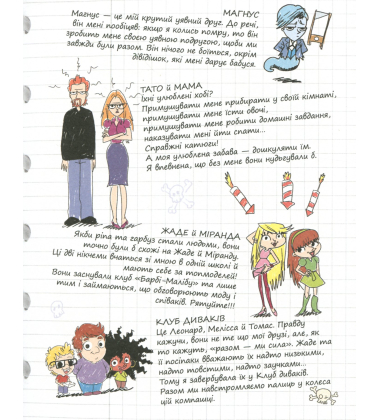 МАГНУС
Магнус — це мій крутий уявний друг. До речі,
він мені пообіцяв: якщо я колись помру, то він
зробить мене своєю уявною подругою, щоби ми
завжди були разом. Він нічого не боїться, окрім
дівідішок, які мені дарує бабуся.
ТАТО й МАМА
Їхні улюблені хобі?
Примушувати мене прибирати у своїй кімнаті,
примушувати мене їсти овочі,
примушувати мене робити домашні завдання,
наказувати мені йти спати...
Справжні катюги!
А моя улюблена забава — дошкуляти їм.
Я впевнена, що без мене вони нудьгували б.
ЖАДЕ й МІРАНДА
Якби ріпа та гарбуз стали людьми, вони
точно були б схожі на Жаде й Міранду.
Ці дві кікімери вчаться зі мною в одній школі й
мають себе за топмоделей!
Вони заснували клуб «Барбі-Малібу» та лише
тим і займаються, що обговорюють моду і
співаків. Рятуйте!!!
КЛУБ ДИВАКІВ
Це Леонард, Мелісса й Томас. Правду
кажучи, вони не те що мої друзі, але, як
то кажуть, «разом — ми сила». Жаде та
її посіпаки вважають їх надто низькими,
надто товстими, надто заучками...
Тому я завербувала їх у Клуб диваків.
Разом ми навстромляємо палиць у колеса
цій компашці.